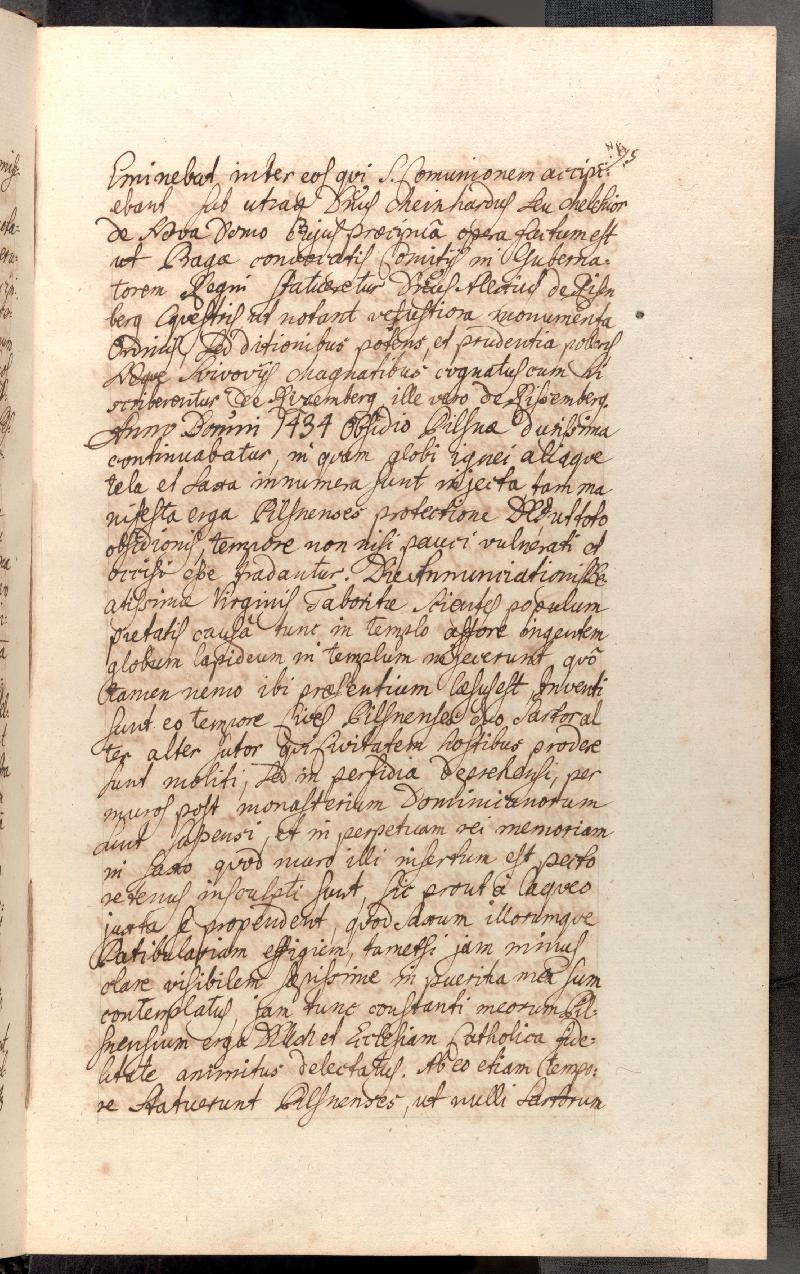 Eminebat inter eos qvi S. Comunionem accipi:
ebant sub utraq Dnus Meinhardus seu Melchior
de Nova Domo Cujus præcipuâ opera factum est
ut Pragæ convocatis Comitijs in Guberna-
torem Regni statueretur Dnus Alexius de Risn
berg Eqvestris ut notant vetustiora monumenta
Ordinis, sed ditionibus potens, et prudentia pollens
Neqve Svivovijs Magnatibus cognatus cum hi
scriberentur de Risemberg, ille vero de Rissemberg.
Anno Domini 1434 Obsidio Pilsnæ durissima
continuabatur, in qvam globi ignei aliaqve
tela et saxa innumera sunt injecta tam ma
nifesta erga Pilsnenses protectione DEI ut toto
obsidionis tempore non nisi pauci vulnerati et
occisi esse tradantur. Die Annunciationis Be
atissimæ Virginis Taboritæ scientes populum
pietatis causâ tunc in templo affore ingentem
globum lapideum in templum injecerunt qvô
tamen nemo ibi præsentium læsus est, Inventi
sunt eo tempore Cives Pilsnenses duo Sartor al
ter alter sutor qvi Civitatem hostibus prodere
sunt moliti, sed in perfidia deprehensi, per
muros post monasterium Dominicanorum
sunt suspensi, et in perpetuam rei memoriam
in saxo qvod muro illi insertum est pecto
re tenus insculpti sunt, sic prout â laqveo
juxta se propendent, qvod saxum illorumqve
Patibulariam effigiem, tametsi jam minus
clare visibilem sæpissime in pueritia meâ sum
contemplatus, jam tunc constanti meorum Pil-
snensium erga DEUM et Ecclesiam Catholica fide-
litate animitus delectatus. Ab eo etiam tempo:
re statuerunt Pilsnenses, ut nulli Sartorum